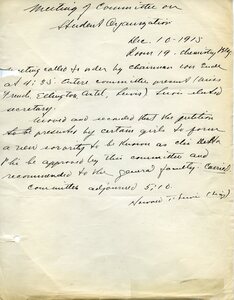 Meeting of Committee on
Student Organization
Dec. 10 - 1913
Room 19 - Chemistry Bldg
Meeting called to order by chairman von Ende
at 4:35. Entire committee present
French, Ellington, Lewis) Lewis elected
secretary.
Moved and seconded that the petition
presented by certain girls to form
a new sorority to be known as Delta
Phi be approved by this committee and
recommended to the general faculty. Carried
Committee adjourned 5:10.
Howard T. Lewis